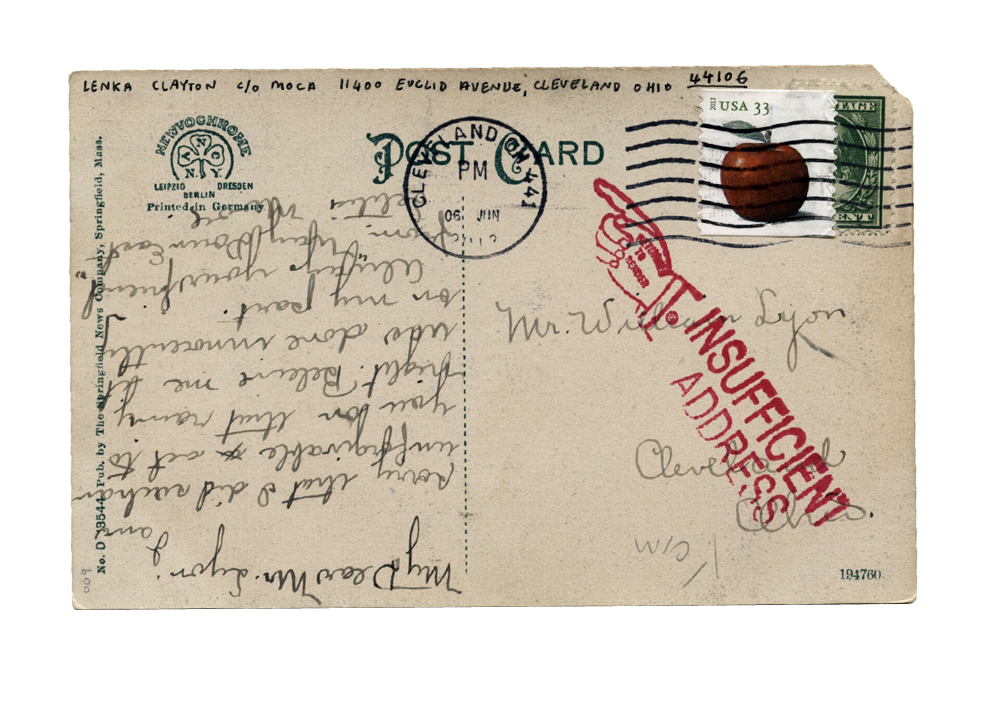 LENKA CLAYTON c/o MOCA 11400 EUCLID AVENUE, CLEVELAND OHIO 44106
NEWVOCHROME
A N C
N.Y.
LEIPZIG DRESDEN
BERLIN
Printed in Germany
POST CARD
CLEVELAND OH 441
PM
06 JUN
2013
USA 33
RETURN
TO
SENDER
INSUFFICIENT
ADDRESS
Mr. William Lyon
Cleveland
Ohio.
194760
No. D 13544 Pub. by The Springfield News Company, Springfield, Mass.
My Dear Mr. Lyon:
I am
sorry that I did such an
unforgivable act to
you on that rainy
night. Believe me it
was done innocently
on my part.
Always your friend
from